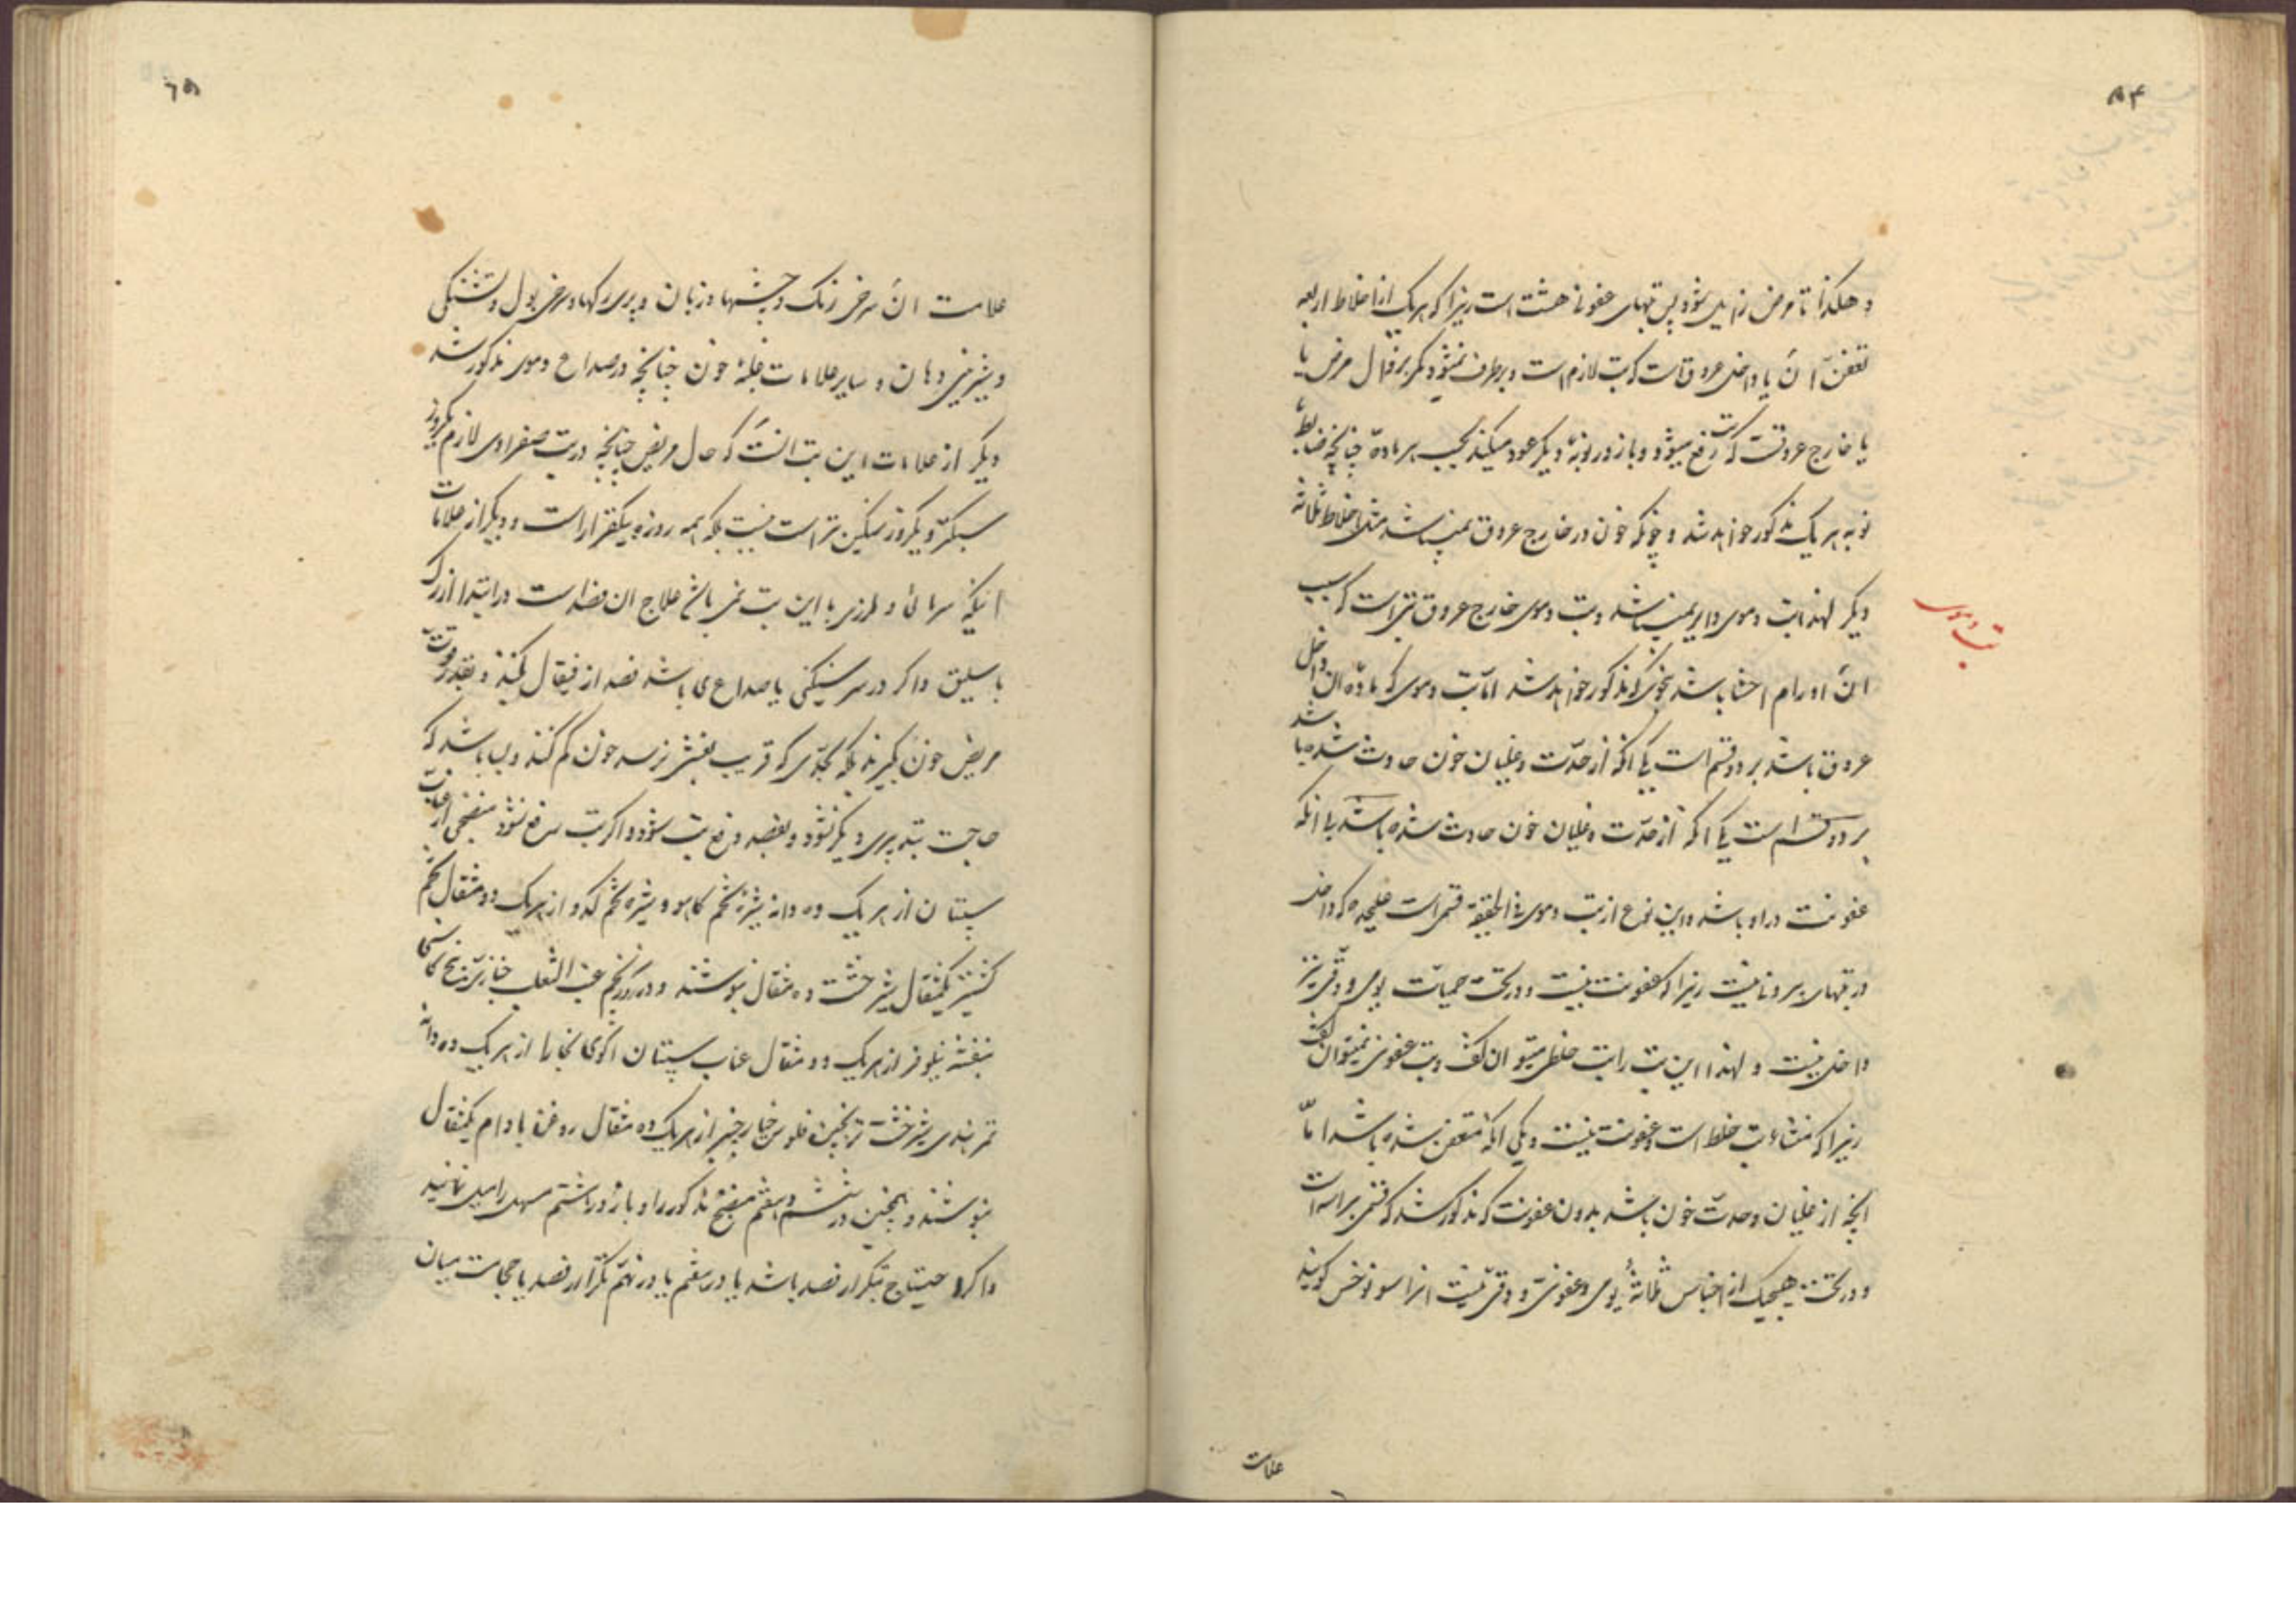 ۸۴
و هکذا تا مرض زایل شود پس تبهای عفونی هشت است زیرا که هریک از اخلاط اربعه
تعفن آن یا داخل عروقست که تب لازم است و برطرف نمیشود مگر بزوال مرض یا
یا خارج عروقست که تب رفع میشود و باز در نوبهٔ دیگر عود میکند بحسب هر ماده چنانچه ضابطهٔ
نوبه هر یک مذکور خواهد شد و چونکه خون در خارج عروق نمیباشد مثل اخلاط ثلاثهٔ
دیگر لهذا تب دموی دایر نمیباشد و تب دموی خارج عروق تبی است که سبب
آن اورام احشا باشد بنحوی که مذکور خواهد شد اما تب دموی که ماده آن داخل
عروق باشد بر دو قسم است یکی آنکه از حدّت و غلیان خون حادث شده باشد
بر دو قسم است یکی آنکه از حدّت و غلیان خون حادث شده باشد یا آنکه
عفونت در او باشد و این نوع از تب دموی فی الحقیقه قسمی است علیحده که داخل
در تبهای عفونی نیست زیرا که عفونت نیست و در تحت حمیات یومی و دقی نیز
داخل نیست و لهذا این تب را تب خلطی میتوان گفت و تب عفونی نمیتوان گفت
زیرا که منشاء تب خلط است و عفونت نیست و یکی آنکه متعفن شده باشد اما
آنچه از غلیان و حدّت خون باشد بدون عفونت که مذکور شد که قسمی براسه است
و در تحت هیچیک از اجناس ثلاثهٔ یومی و عفونی و دقی نیست آنرا سونوخس گویند
تب دموی
علامت
۸۵
علامت آن سرخی رنک و چشمها و زبان و پری رکها و سرخی بول و تشنکی
و شیرینی دهان و سایر علامات غلبهٔ خون چنانچه در صداع دموی مذکور شد
دیگر از علامات این تب آنست که حال مریض چنانچه در تب صفراوی لازم یکروز
سبکتر و یکروز سنگین تر است نیست بلکه همه روزه بیکقرار است و دیگر از علامات
آنکه سرمائی و لرزی با این تب نمی باشد علاج آن فصد است در ابتدا از رک
باسلیق و اکر در سر سنکینی یا صداعی باشد فصد از قیفال کنند و بقدر قوت
مریض خون بگیرند بلکه بحدّی که قریب بغشی برسد خون کم کنند و بسا باشد که
حاجت بتدبیری دیگر نشود و بفصد رفع تب شود و اکر تب رفع نشود منضجی از عناب
سپستان از هر یک ده دانه شیره تخم کاهو و شیره تخم کدو از هریک دو مثقال تخم
کشنیز یکمثقال شیرخشت ده مثقال بنوشند و در روز پنجم عنب الثعلب خبازی بیخ کاسنی
بنفشه نیلوفر از هریک دو مثقال عناب سپستان آلوی بخارا از هر یک ده دانه
تمر هندی شیرخشت ترنجبین فلوس خیار چنبر از هریک ده مثقال روغن بادام یکمثقال
بنوشند و همچنین در ششم و هفتم منضج مذکور را و باز در هشتم مسهل را میل نمایند
و اکر احتیاج بتکرار فصد باشد یا در هفتم یا در نهم تکرار فصد یا حجامت میان